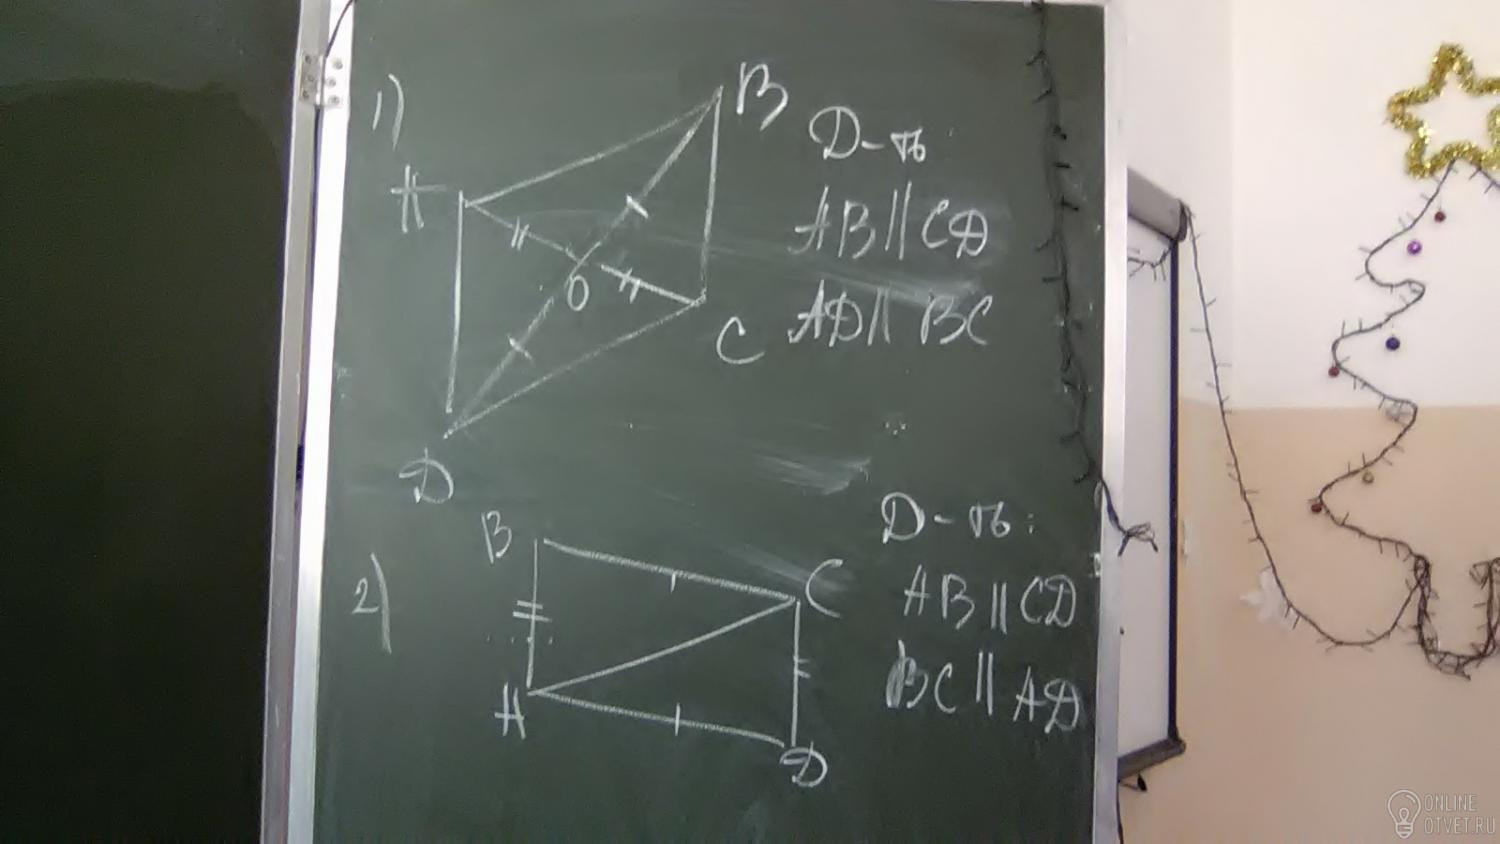 1)
B
Д-ть
A
AB || CD
O
AD || BC
C
D
2)
B
Д-ть:
C
AB || CD
BC || AD
A
D
ONLINE
OTVET.RU